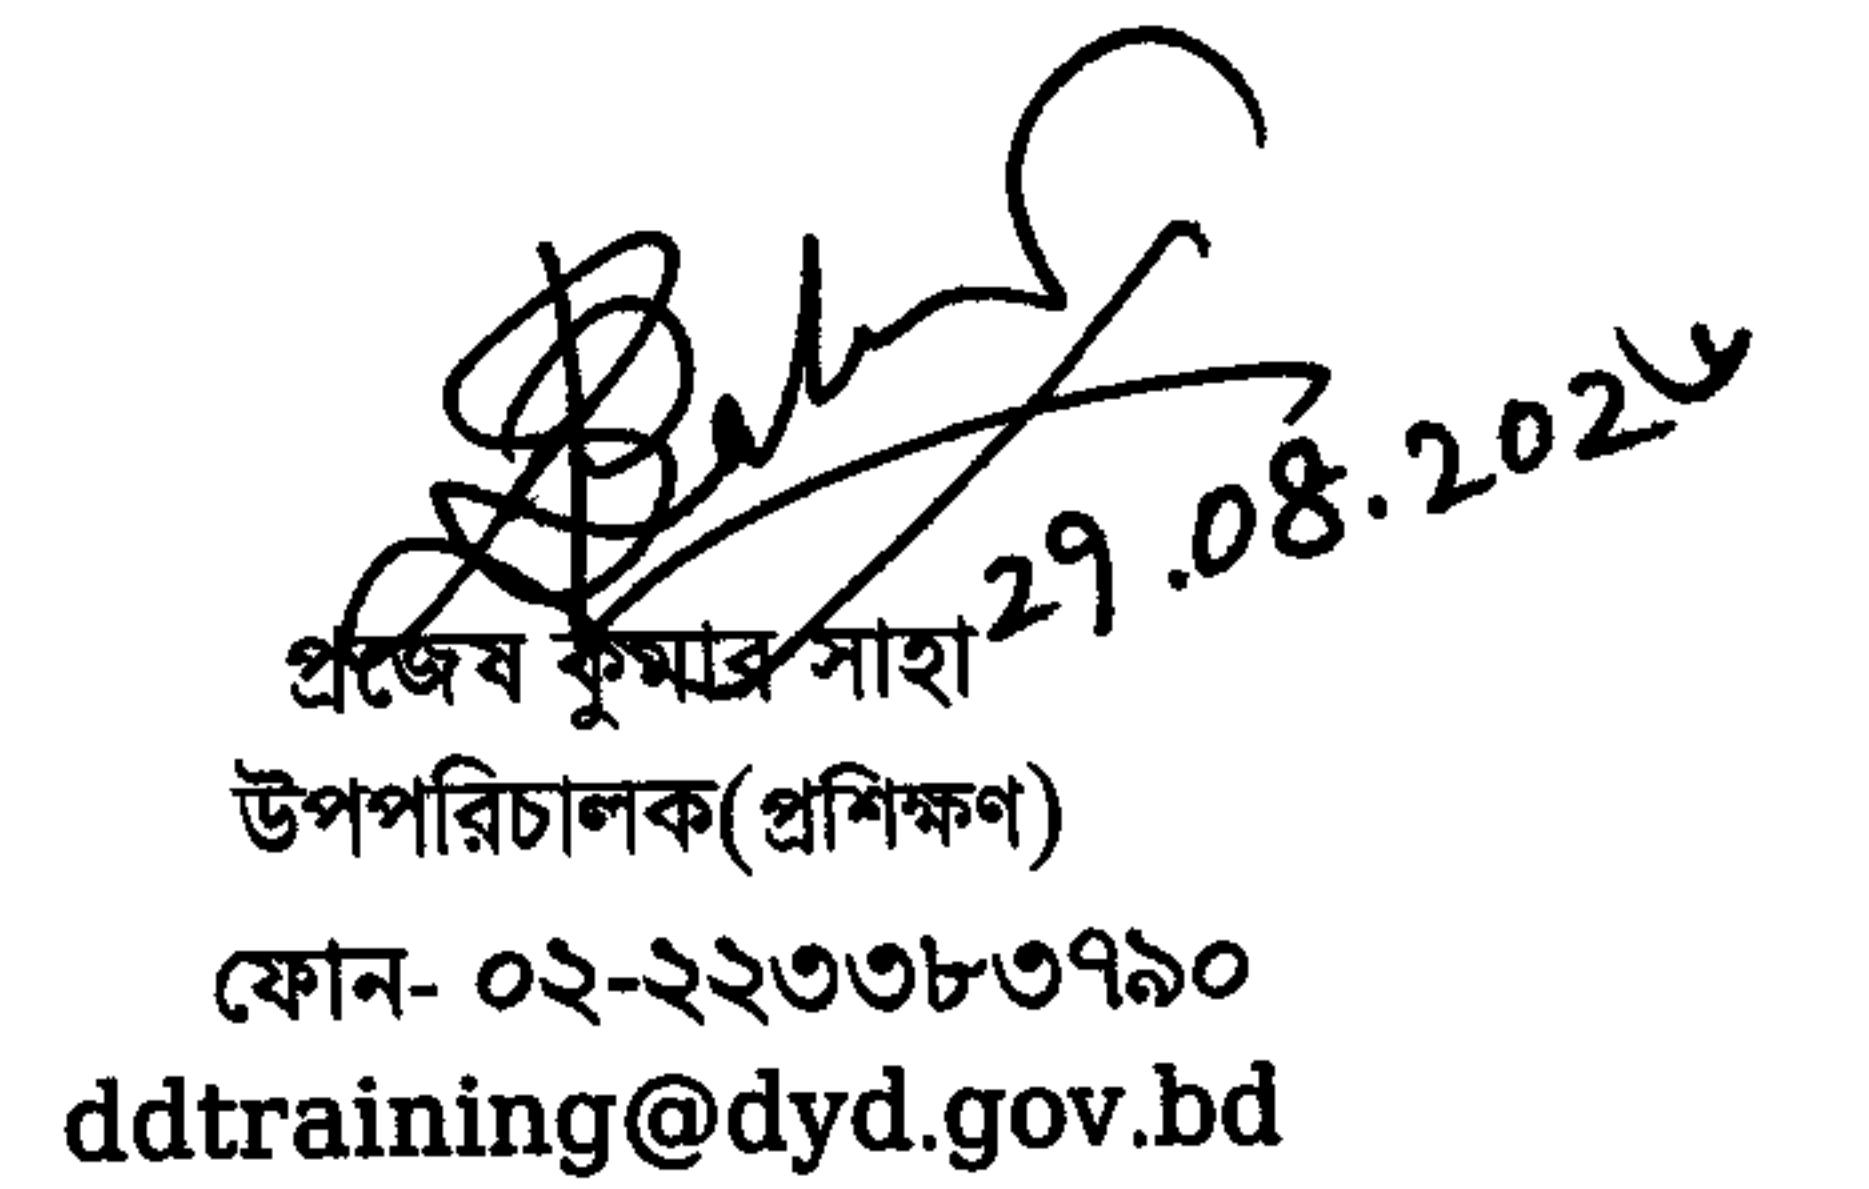 ২৭.০৪.২০২৬
প্রজেষ কুমার সাহা
উপপরিচালক(প্রশিক্ষণ)
ফোন- ০২-২২৩৩৮৩৭৯০
ddtraining@dyd.gov.bd